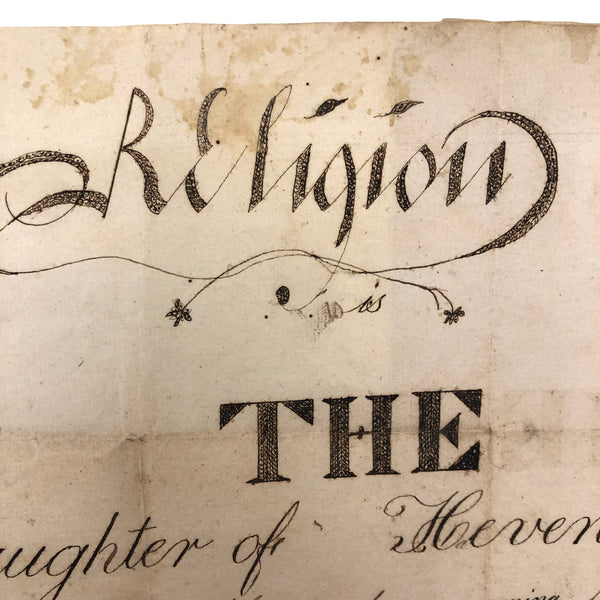 Religion
is
THE
aughter of Heven